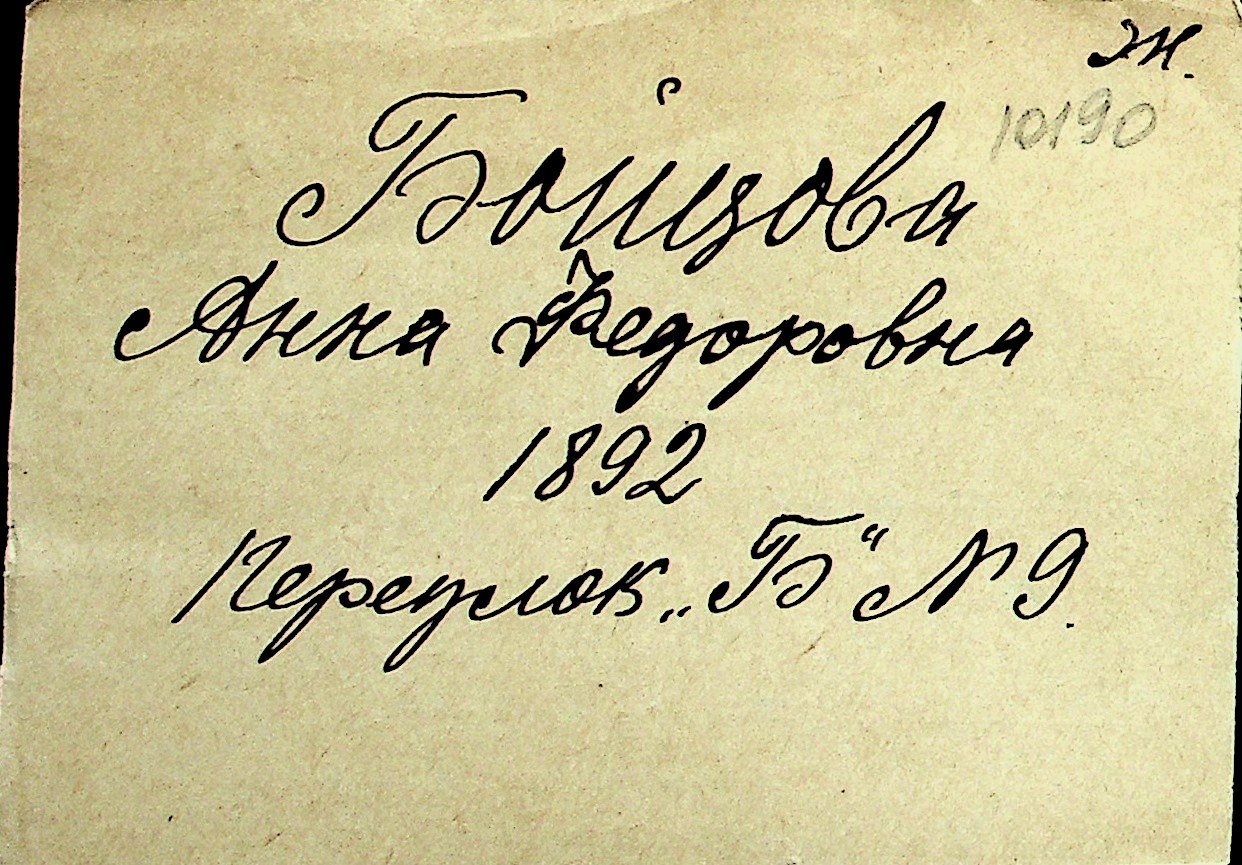 ж.
10190
Бойцова
Анна Федоровна
1892
Переулок „Б“ № 9.